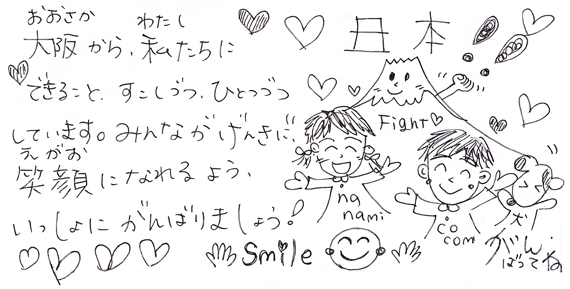 おおさか わたし
大阪から、私たちに
できること、すこしづつ、ひとつづつ
しています。みんながげんきに、
えがお
笑顔になれるよう、
いっしょにがんばりましょう!
Smile
日本
Fight
na
nami
co
com
犬
がん
ばってね